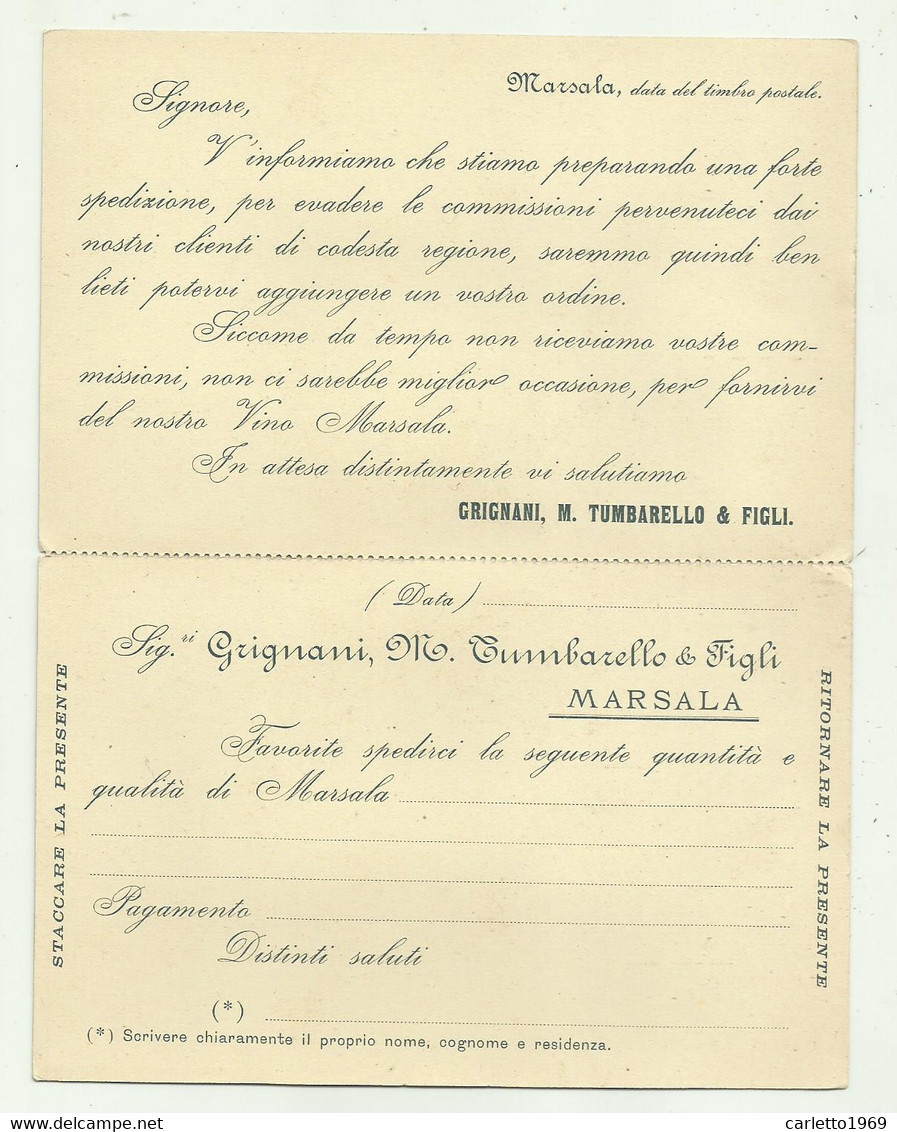 Marsala, data del timbro postale.
Signore,
V'informiamo che stiamo preparando una forte
spedizione, per evadere le commissioni pervenuteci dai
nostri clienti di codesta regione, saremmo quindi ben
lieti potervi aggiungere un vostro ordine.
Siccome da tempo non riceviamo vostre com-
missioni, non ci sarebbe miglior occasione, per fornirvi
del nostro Vino Marsala.
In attesa distintamente vi salutiamo
GRIGNANI, M. TUMBARELLO & FIGLI.
(Data)
Sig.ri Grignani, M. Tumbarello & Figli
MARSALA
Favorite spedirci la seguente quantità e
qualità di Marsala
Pagamento
Distinti saluti
(*)
(*) Scrivere chiaramente il proprio nome, cognome e residenza.
STACCARE LA PRESENTE
RITORNARE LA PRESENTE
delcampe.net
carletto1969